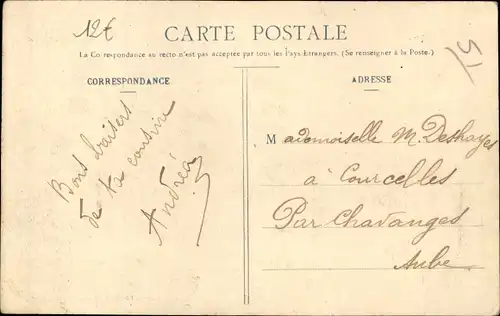 12€
CARTE POSTALE
51
La Correspondance au recto n'est pas acceptée par tous les Pays Etrangers. (Se renseigner à la Poste.)
CORRESPONDANCE
ADRESSE
Bons baisers
de ta cousine
Andréa
Mademoiselle M. Deshayes
à Courcelles
Par Chavanges
Aube